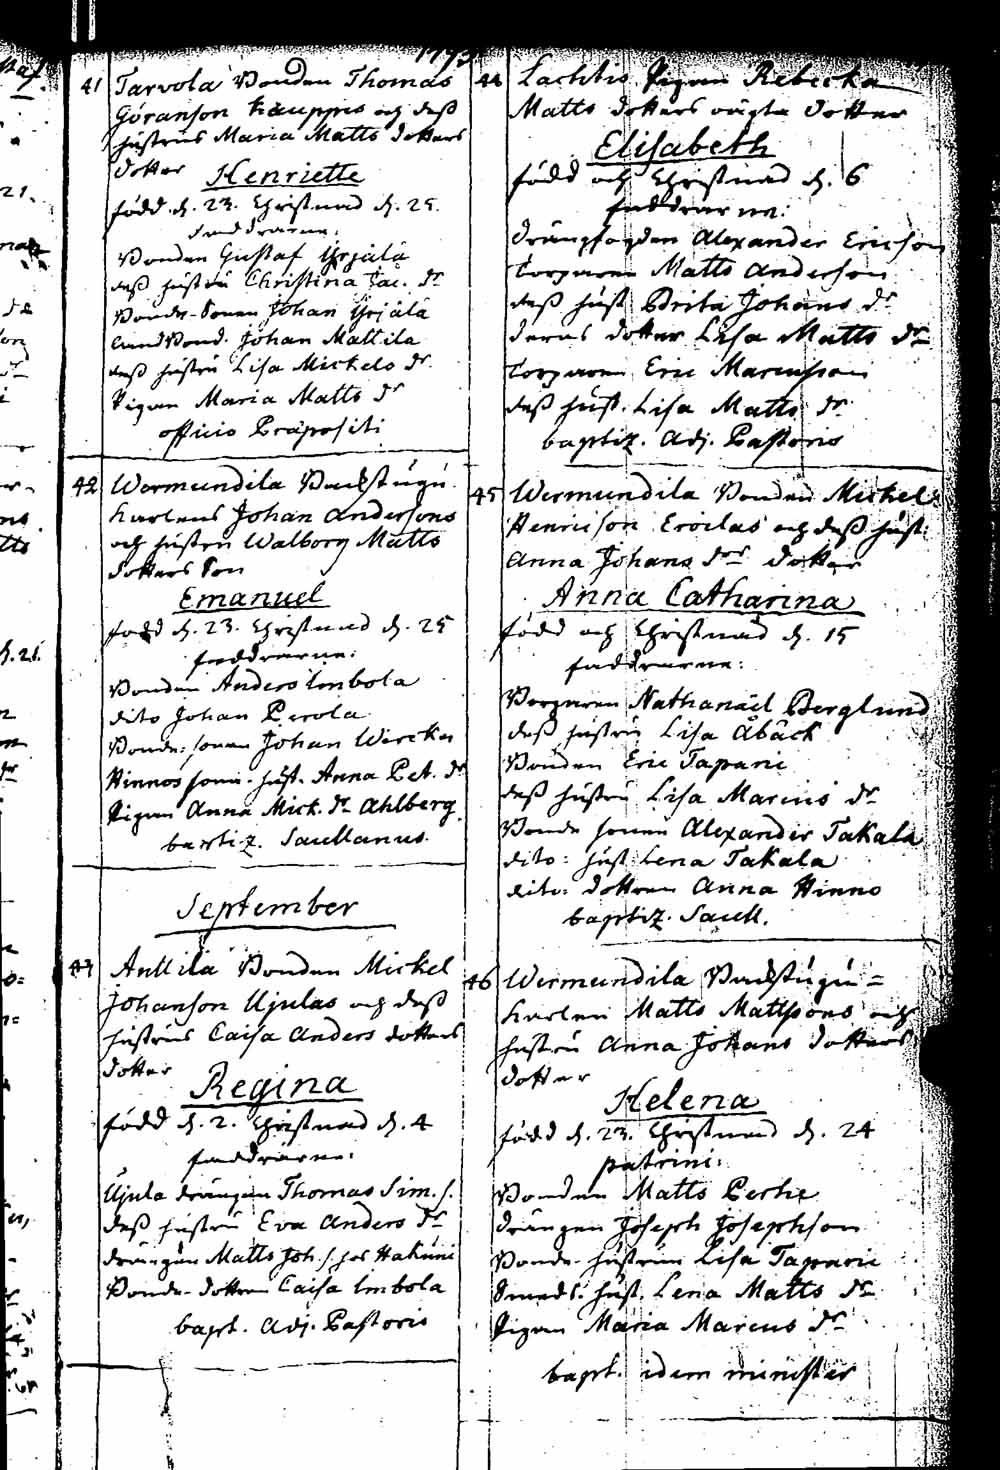 1793
41 Tarvola Bonden Thomas
Göranson Kauppis och dess
hustrus Maria Matts dotters
dotter Henriette
född d. 23. Christnad d. 25.
faddrarne:
Bonden Gustaf Yrjälä
dess hustru Christina Jac. dr
Bonde-Sonen Johan Yrjälä
Landbond. Johan Mattila
dess hustru Lisa Mickels dr
Pigan Maria Matts dr
officio Præpositi
42 Wermundila Backstugu
karlens Johan Andersons
och hustru Walborg Matts
dotters Son
Emanuel
född d. 23. Christnad d. 25
faddrarne:
Bonden Anders Imbola
dito Johan Perola
Bonde: sonen Johan Wircka
Hinnos sonu. hust. Anna Pet. dr
Pigan Anna Mick. dr Ahlberg
baptiz. Sacellanus.
September
43 Anttila Bonden Mickel
Johanson Ujulas och dess
hustrus Caisa Anders dotters
dotter
Regina
född d. 2. Christnad d. 4
faddrarne:
Ujula drängen Thomas Sim. s.
dess hustru Eva Anders dr
drängen Matts Joh. s. hos Hakuni
Bonde-dottren Caisa Imbola
bapt. Adj. Pastoris
44 Lachtis Pigan Rebecka
Matts dotters oägta dotter
Elisabeth
född och Christnad d. 6
faddrarne:
drängfogden Alexander Ericson
Torparen Matts Anderson
dess hust. Brita Johans dr
deras dotter Lisa Matts dr
Torparen Eric Marcusson
dess hust. Lisa Matts dr
baptiz. Adj. Pastoris
45 Wermundila Bonden Mickel
Henricson Erolas och dess hust:
Anna Johans drs dotter
Anna Catharina
född och Christnad d. 15
faddrarne:
Torparen Nathanaël Berglund
dess hustru Lisa Åbäck
Bonden Eric Tapani
dess hustru Lisa Marcus dr
Bonde sonen Alexander Takala
dito: hust. Lena Takala
dito: dottren Anna Hinno
baptiz. Sacell.
46 Wermundila Backstugu=
karlen Matts Mattssons och
hustru Anna Johans dotters
dotter
Helena
född d. 23. Christnad d. 24
patrini:
Bonden Matts Perho
drängen Joseph Josephson
Bonde-hustrun Lisa Tapani
Smeds. hust. Lena Matts dr
Pigan Maria Marcus dr
bapt. idem minister